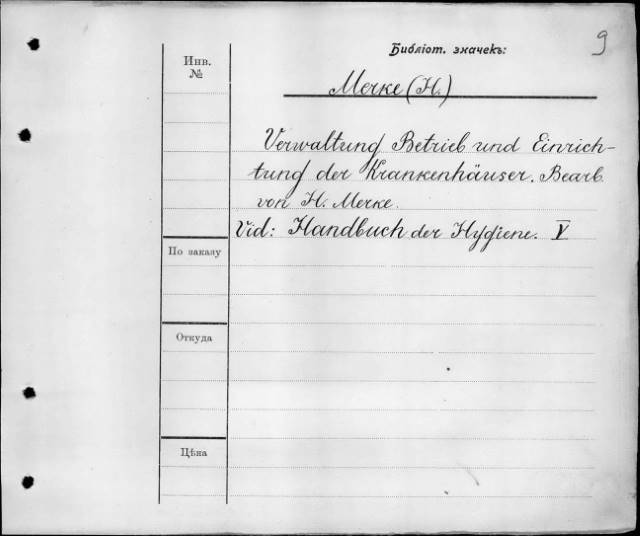 9
Библіот. значекъ:
Инв.
№
Merke (H.)
Verwaltung Betrieb und Einrich-
tung der Krankenhäuser. Bearb.
von H. Merke.
Vid: Handbuch der Hygiene. V
По заказу
Откуда
Цѣна